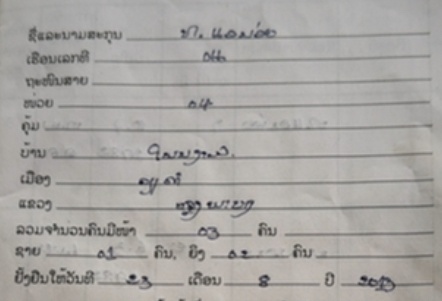 ຊື່ແລະນາມສະກຸນ ທ. ແອນ້ອຍ
ເຮືອນເລກທີ 044
ຖະໜົນສາຍ
ໜ່ວຍ 04
ຄຸ້ມ
ບ້ານ
ເມືອງ
ແຂວງ
ລວມຈຳນວນຄົນມີໜ້າ 03 ຄົນ
ຊາຍ 01 ຄົນ, ຍິງ 02 ຄົນ
ຢັ້ງຢືນໃຫ້ວັນທີ 23 ເດືອນ 8 ປີ 2013